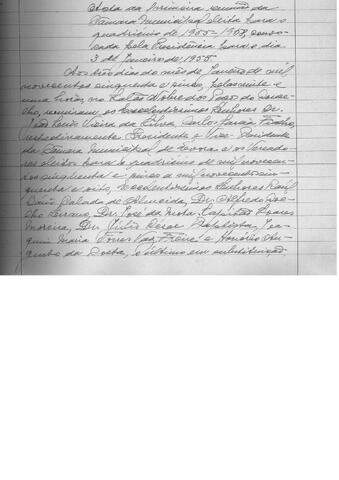 Acta da primeira reunião da
Câmara Municipal eleita para o
quadriénio de 1955-1958, convo-
cada pela Presidência para o dia
3 de Janeiro de 1955.
Aos três dias do mês de Janeiro de mil
novecentos cinquenta e cinco, pelas vinte e
uma horas, no Salão Nobre dos Paços do Conce-
lho, reuniram os Excelentíssimos Senhores Dr.
João Luís Vieira da Silva e
respectivamente Presidente e Vice-Presidente
da Câmara Municipal de Évora e os Vereado-
res eleitos para o quadriénio de mil novecen-
tos cinquenta e cinco a mil novecentos cin-
quenta e oito, Excelentíssimos Senhores Raúl
Calado de Almeida, Dr. Alfredo
Dr. José da Mota, Capitão Soares
Moreira, Dr. Júlio César Baptista, Joa-
quim Maria Torres Vaz Freire e Honório Au-
gusto da Costa, o último em substituição